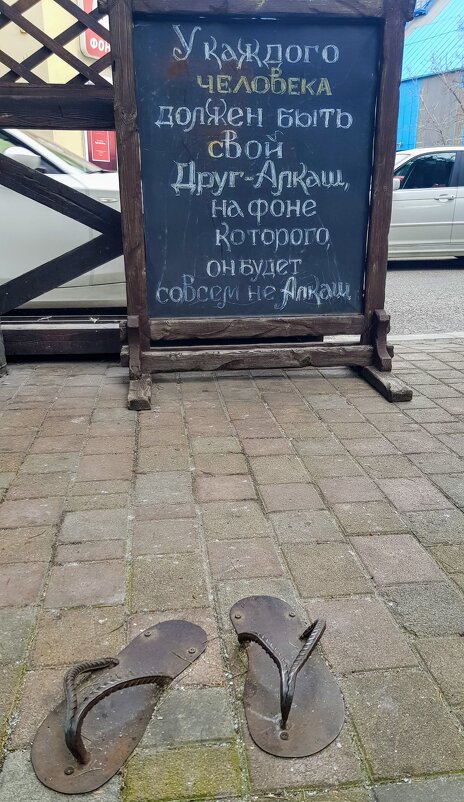 У каждого
человека
должен быть
свой
Друг-Алкаш,
на фоне
которого,
он будет
совсем не Алкаш